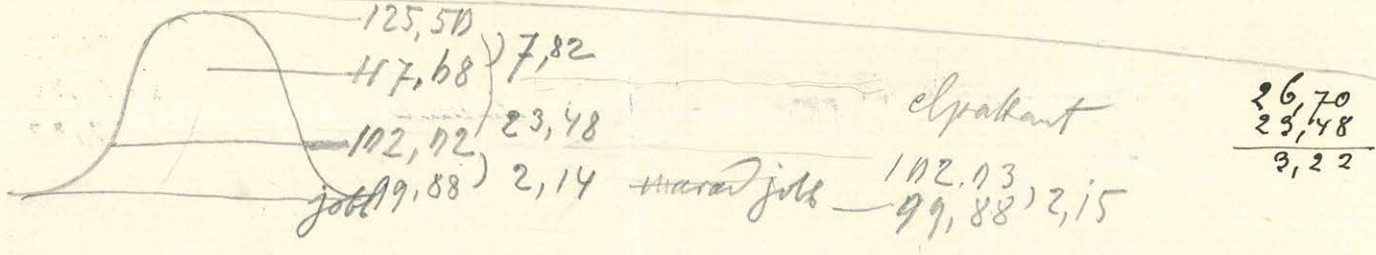 125,50
117,68 ) 7,82
102,02 23,48
jobb 99,88 ) 2,14 marad jobb
elpattant
102.03
99,88 ) 2,15
26,70
23,48
3,22